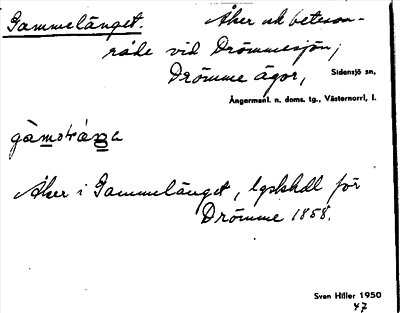 Gammelänget. Åker ok beteson-
råde vid Drömmesjön,
Drömme ägor, Sidensjö sn,
Ångermanl. n. doms. tg., Västernorrl. l.
Åker i Gammelänget, lgskhdl för
Drömme 1858.
Sven Hiller 1950
47